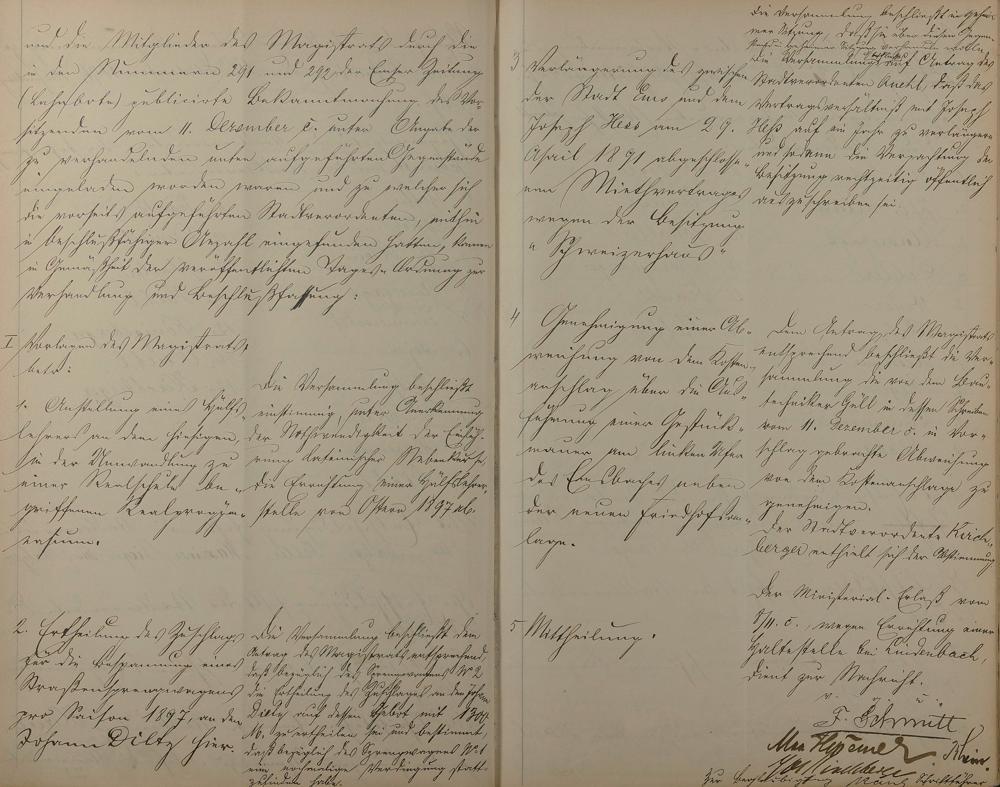 und die Mitglieder des Magistrats durch die
in den Nummern 291 und 292 der Emser Zeitung
(Lahnbote) publicirte Bekanntmachung des Vor-
sitzenden vom 11. Dezember c. unter Angabe der
zu verhandelnden unten aufgeführten Gegenstände
eingeladen worden waren und zu welcher sich
die vorseits aufgeführten Stadtverordneten, mithin
in beschlußfähiger Anzahl eingefunden hatten, kamen
in Gemäßheit der veröffentlichten Tages-Ordnung zur
Verhandlung und Beschlußfassung:
I Vorlagen des Magistrats,
betr:
1. Anstellung eines Hülfs-
lehrers an dem hiesigen,
in der Umwandlung zu
einer Realschule be-
griffenen Realprogym-
nasium.
Die Versammlung beschließt
einstimmig, unter Anerkennung
der Nothwendigkeit der Einfüh-
rung lateinischer Nebenkurse,
die Errichtung einer Hülfslehrer-
stelle von Ostern 1897 ab.
2. Ertheilung des Zuschlags
für die Bespannung eines
Straßensprengwagens
pro Saison 1897, an den
Johann Diltz hier.
Die Versammlung beschließt dem
Antrag des Magistrats entsprechend,
daß bezüglich des Sprengwagens No 2
die Ertheilung des Zuschlages an den Johann
Diltz auf dessen Gebot mit 1304
M. zu ertheilen sei und bestimmt,
daß bezüglich des Sprengwagens No 1
eine nochmalige Verdingung statt-
zufinden habe.
3 Verlängerung des zwischen
der Stadt Ems und dem
Joseph Hess am 29.
April 1891 abgeschlosse-
nen Miethvertrages
wegen der Besitzung
"Schweizerhaus"
Die Versammlung beschließt in gehei-
mer Sitzung, daß sie über diesen Gegen-
stand in geheimer Sitzung verhandeln wolle.
Die Versammlung beschließt auf Antrag des
Stadtverordneten, daß das
Vertragsverhältniß mit Joseph
Heß auf ein Jahr zu verlängern
und sodann die Verpachtung der
Besitzung rechtzeitig öffentlich
auszuschreiben sei.
4 Genehmigung einer Ab-
weichung von dem Kosten-
anschlag über die Aus-
führung einer Gestück-
mauer am linken Ufer
des Emsbaches neben
der neuen Friedhofsan-
lage.
Dem Antrag des Magistrats
entsprechend beschließt die Ver-
sammlung die von dem Bau-
techniker Göll in dessen Schreiben
vom 11. Dezember c. in Vor-
schlag gebrachte Abweichung
von dem Kostenanschlage zu
genehmigen.
Der Stadtverordnete Kirch-
berger enthielt sich der Abstimmung
5 Mittheilung.
Der Ministerial-Erlaß vom
c., wegen Errichtung einer
Haltestelle bei Lindenbach,
dient zur Nachricht.
v. g. u.
F. Schmitt
Max
Zur Beglaubigung
Schriftführer